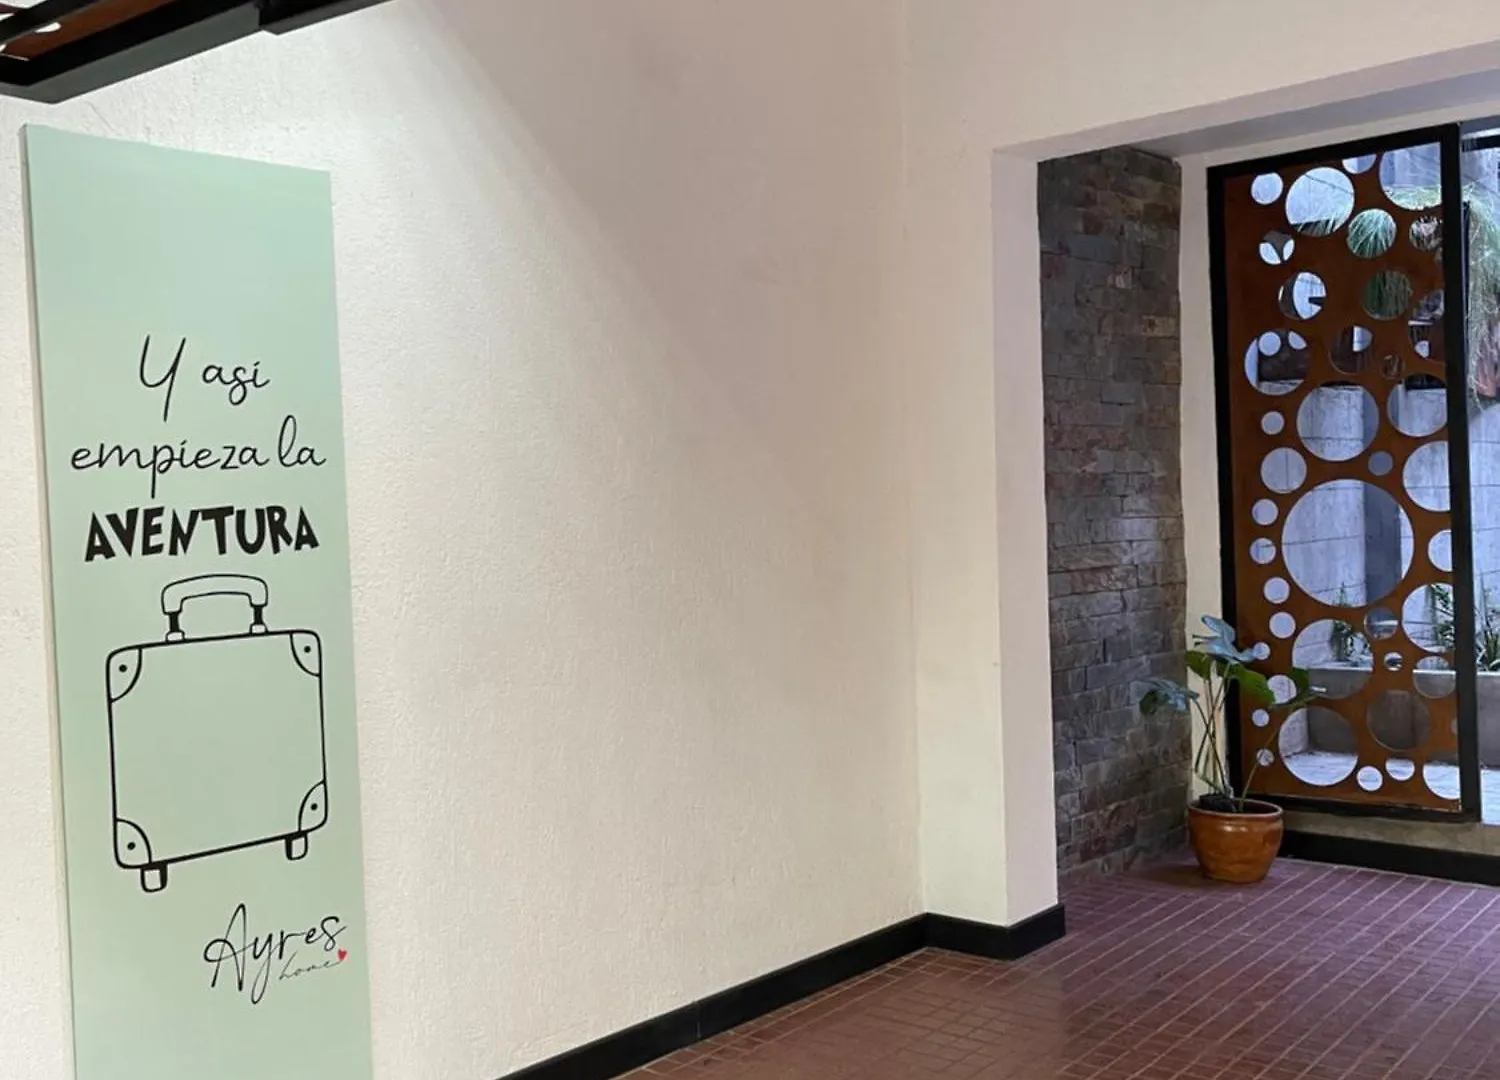 Y así
empieza la
AVENTURA
Ayres
home